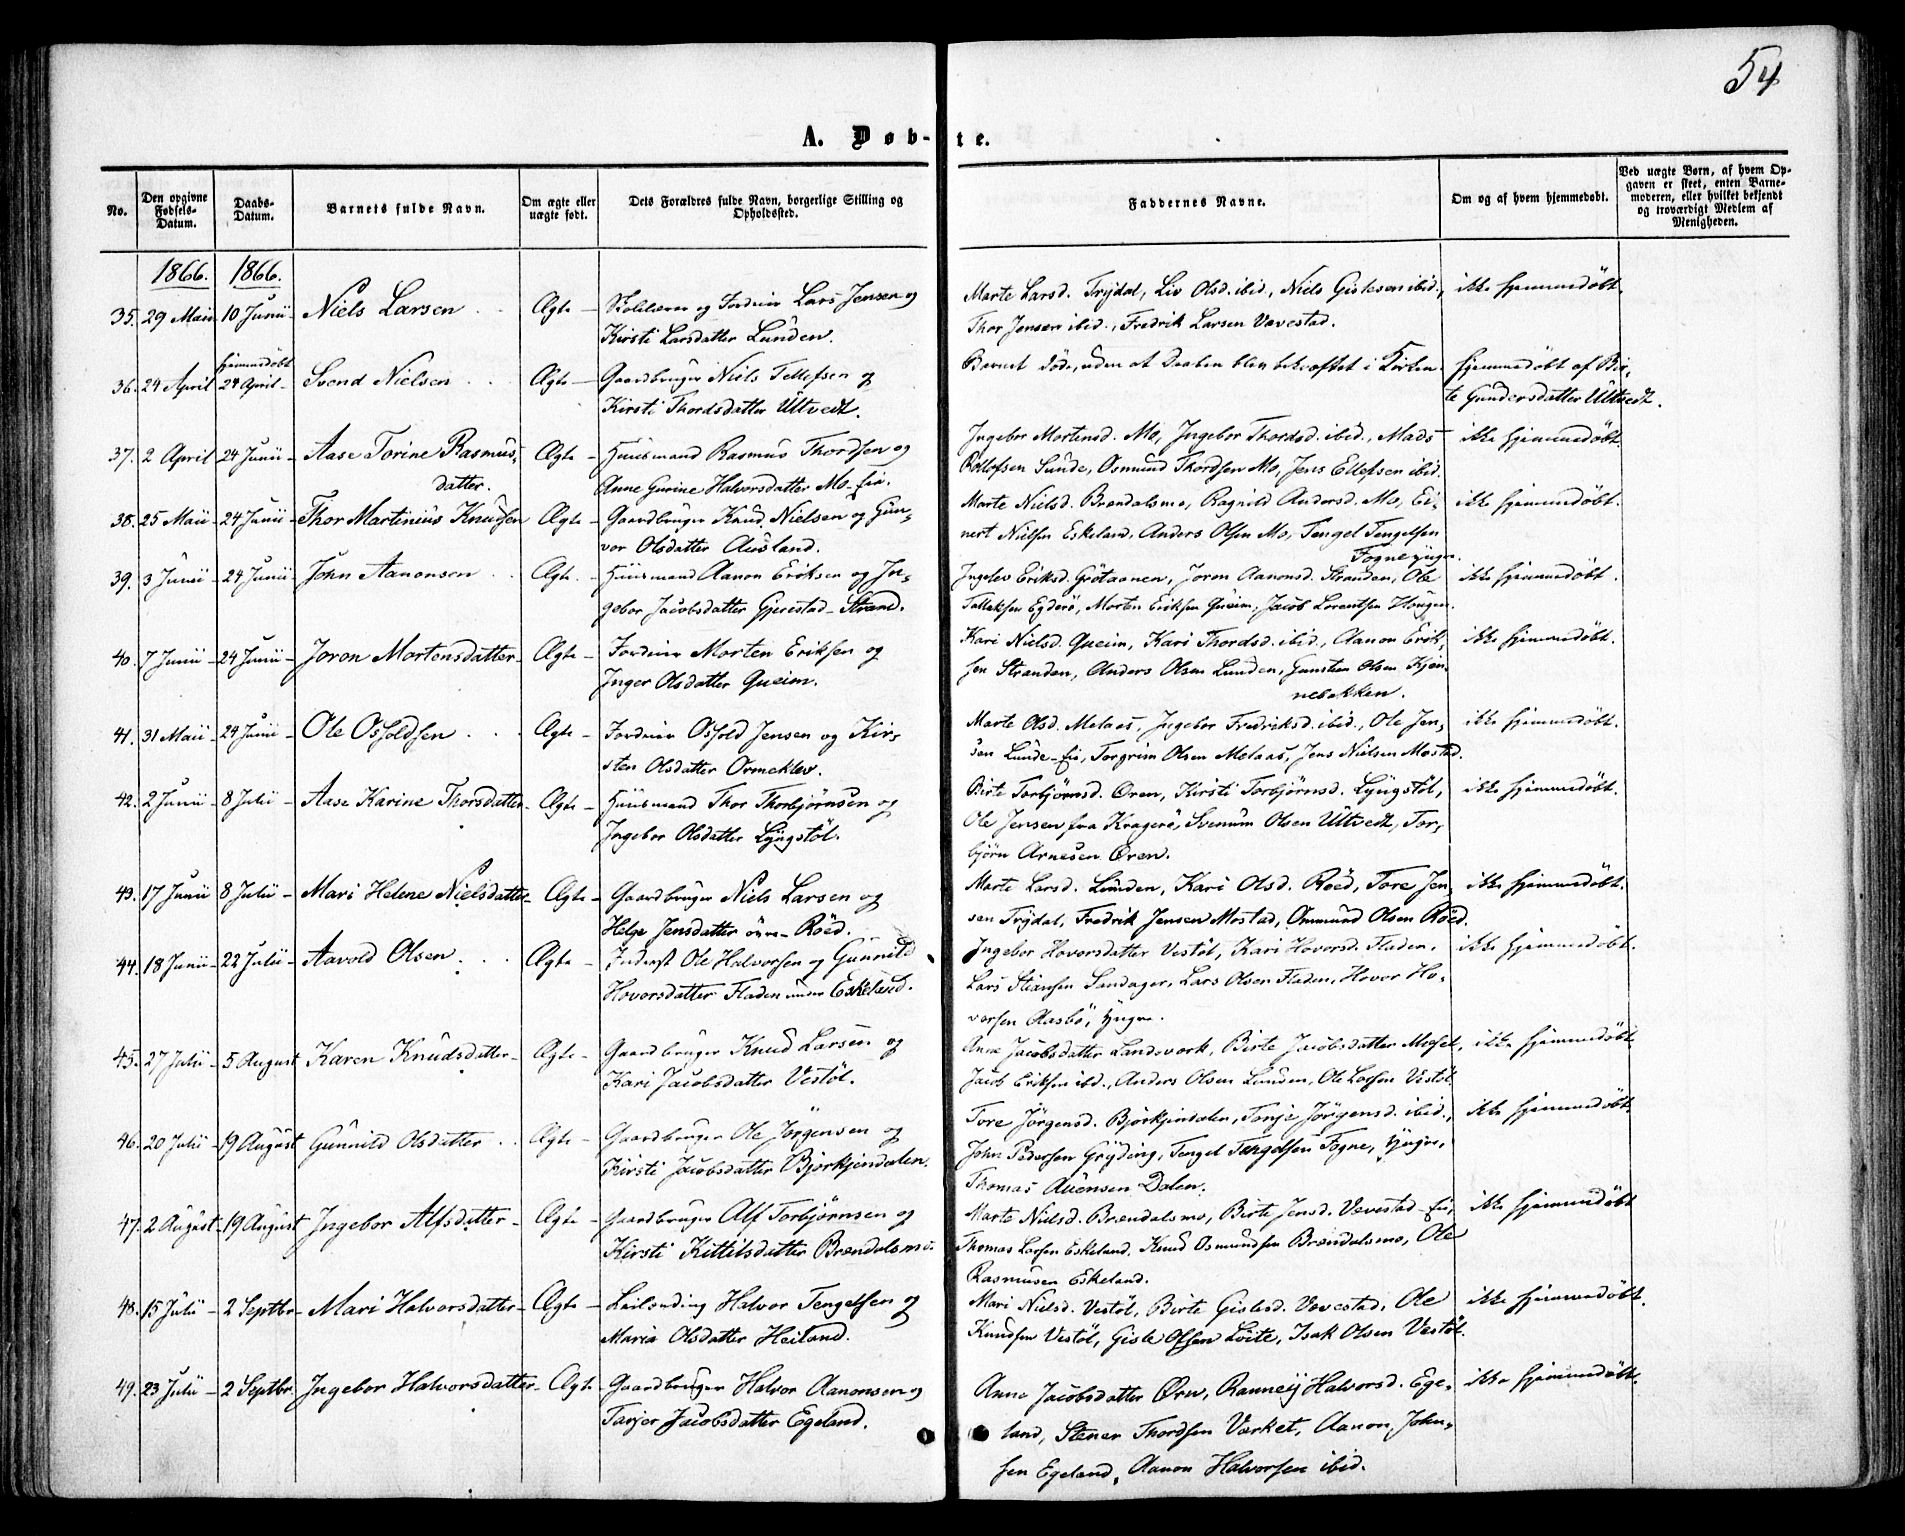 54
A. Døb-te.
No.
Den opgivne Fødsels-Datum.
Daabs-Datum.
Barnets fulde Navn.
Om ægte eller uægte født.
Dets Forældres fulde Navn, borgerlige Stilling og Opholdssted.
Faddernes Navne.
Om og af hvem hjemmedøbt.
Ved uægte Børn, af hvem Opgaven er skeet, enten Barnemoderen, eller hvilket bekjendt og troværdigt Medlem af Menigheden.
1866. 1866.
35. 29 Maii 10 Junii Niels Larsen Ægte Skolelærer og Fordeier Lars Jensen og
Kirsti Larsdatter Lunden.
Marte Larsd. Trydal, Liv Olsd. ibid., Niels Gislesen ibid., ikke hjemmedöbt.
Thor Jensen ibid., Fredrik Larsen Vævestad.
36. 24 April hjemmedöbt 24 April Svend Nielsen Ægte Gaardbruger Niels Tellefsen og
Kirsti Thordsdatter Ultvedt.
Barnet döde, uden at Daaben blev bekræftet i Kirken. hjemmedöbt af Bir-
te Gundersdatter Ultvedt.
37. 2 April 24 Junii Aase Torine Rasmus-
datter. Ægte Huusmand Rasmus Thordsen og
Anne Gurine Halvorsdatter Mo-eie.
Ingebor Mortensd. Mo, Ingebor Thordsd. ibid., Mads ikke hjemmedöbt
Rollefsen Lunde, Osmund Thordsen Mo, Jens Ellefsen ibid.
38. 25 Maii 24 Junii Thor Martinius Knudsen Ægte Gaardbruger Knud Nielsen og Gun-
vor Olsdatter Ausland.
Marte Nielsd. Brændalsmo, Ragnild Andersd. Mo, Ei- ikke hjemmedöbt.
nert Nielsen Eskeland, Anders Olsen Mo, Tengel Tengelsen
Fogne yngre.
39. 3 Junii 24 Junii John Aanonsen Ægte Huusmand Aanon Eriksen og In-
gebor Jacobsdatter Gjerestad-Strand.
Ingelev Eriksd. Grötaanen, Joron Aanonsd. Stranden, Ole ikke hjemmedöbt.
Tallaksen Egderö, Morten Eriksen Qveim, Jacob Lorentsen Hougen.
40. 7 Junii 24 Junii Joron Mortensdatter Ægte Fordeier Morten Eriksen og
Inger Olsdatter Qveim.
Kari Nielsd. Qveim, Kari Thordsd. ibid., Aanon Erik- ikke hjemmedöbt.
sen Stranden, Anders Olsen Lunden, Gunsten Olsen Kjen-
nebakken.
41. 31 Maii 24 Junii Ole Osfoldsen Ægte Fordeier Osfold Jensen og Kir-
sten Olsdatter Ormeklev.
Marte Olsd. Melaas, Ingebor Fredriksd. ibid., Ole Jen- ikke hjemmedöbt.
sen Lunde-eie, Torgrim Olsen Melaas, Jens Nielsen Mostad.
42. 2 Junii 8 Julii Aase Karine Thorsdatter Ægte Huusmand Thor Thorbjørnsen og
Ingebor Olsdatter Lyngstöl.
Birte Torbjörnsd. Øren, Kirsti Torbjörnsd. Lyngstöl, ikke hjemmedöbt.
Ole Jensen fra Kragerö, Svenum Olsen Ultvedt, Tor-
björn Arnesen Øren.
43. 17 Junii 8 Julii Mari Helene Nielsdatter Ægte Gaardbruger Niels Larsen og
Helge Jensdatter övre-Röed.
Marte Larsd. Lunden, Kari Olsd. Röed, Tore Jen- ikke hjemmedöbt.
sen Trydal, Fredrik Jensen Mostad, Ommund Olsen Röed.
44. 18 Junii 22 Julii Aavold Olsen Ægte Inderst Ole Halvorsen og Gunnild
Hovorsdatter Fladen under Eskeland.
Ingebor Hovorsdatter Vestöl, Kari Hovorsd. Fladen, ikke hjemmedöbt.
Lars Stiansen Sandager, Lars Olsen Fladen, Hovor Ho-
vorsen Aasbö, yngre.
45. 27 Julii 5 August Karen Knudsdatter Ægte Gaardbruger Knud Larsen og
Kari Jacobsdatter Vestöl.
Anne Jacobsdatter Landsverk, Birte Jacobsdatter Moset, ikke hjemmedöbt.
Jacob Eriksen ibd., Anders Olsen Lunden, Ole Larsen Vestöl.
46. 20 Julii 19 August Gunnild Olsdatter Ægte Gaardbruger Ole Jörgensen og
Kirsti Jacobsdatter Bjorkjendalen.
Tore Jörgensd. Björkjendalen, Tonje Jörgensd. ibid., ikke hjemmedöbt.
John Pedersen Gryding, Tengel Tengelsen Fogne, yngre,
Thomas Auensen Dalen.
47. 2 August 19 August Ingebor Alfsdatter Ægte Gaardbruger Alf Torbjörnsen og
Kirsti Kittilsdatter Brændalsmo.
Marte Nielsd. Brændalsmo, Birte Jensd. Vevestad-eie, ikke hjemmedöbt
Thomas Larsen Eskeland, Knud Osmundsen Brændalsmo, Ole
Rasmusen Eskeland.
48. 15 Julii 2 Septbr Mari Halvorsdatter Ægte Leilænding Halvor Tengelsen og
Maria Olsdatter Heiland.
Mari Nielsd. Vestöl, Birte Gislesd. Vevestad, Ole ikke hjemmedöbt.
Knudsen Vestöl, Gisle Olsen Löite, Isak Olsen Vestöl.
49. 23 Julii 2 Septbr. Ingebor Halvorsdatter Ægte Gaardbruger Halvor Aanonsen og
Tarjer Jacobsdatter Egeland.
Anne Jacobsdatter Ørn, Ranneij Halvorsd. Ege- ikke hjemmedöbt.
land, Stener Thordsen Værket, Aanon John-
sen Egeland, Aanon Halvorsen ibid.